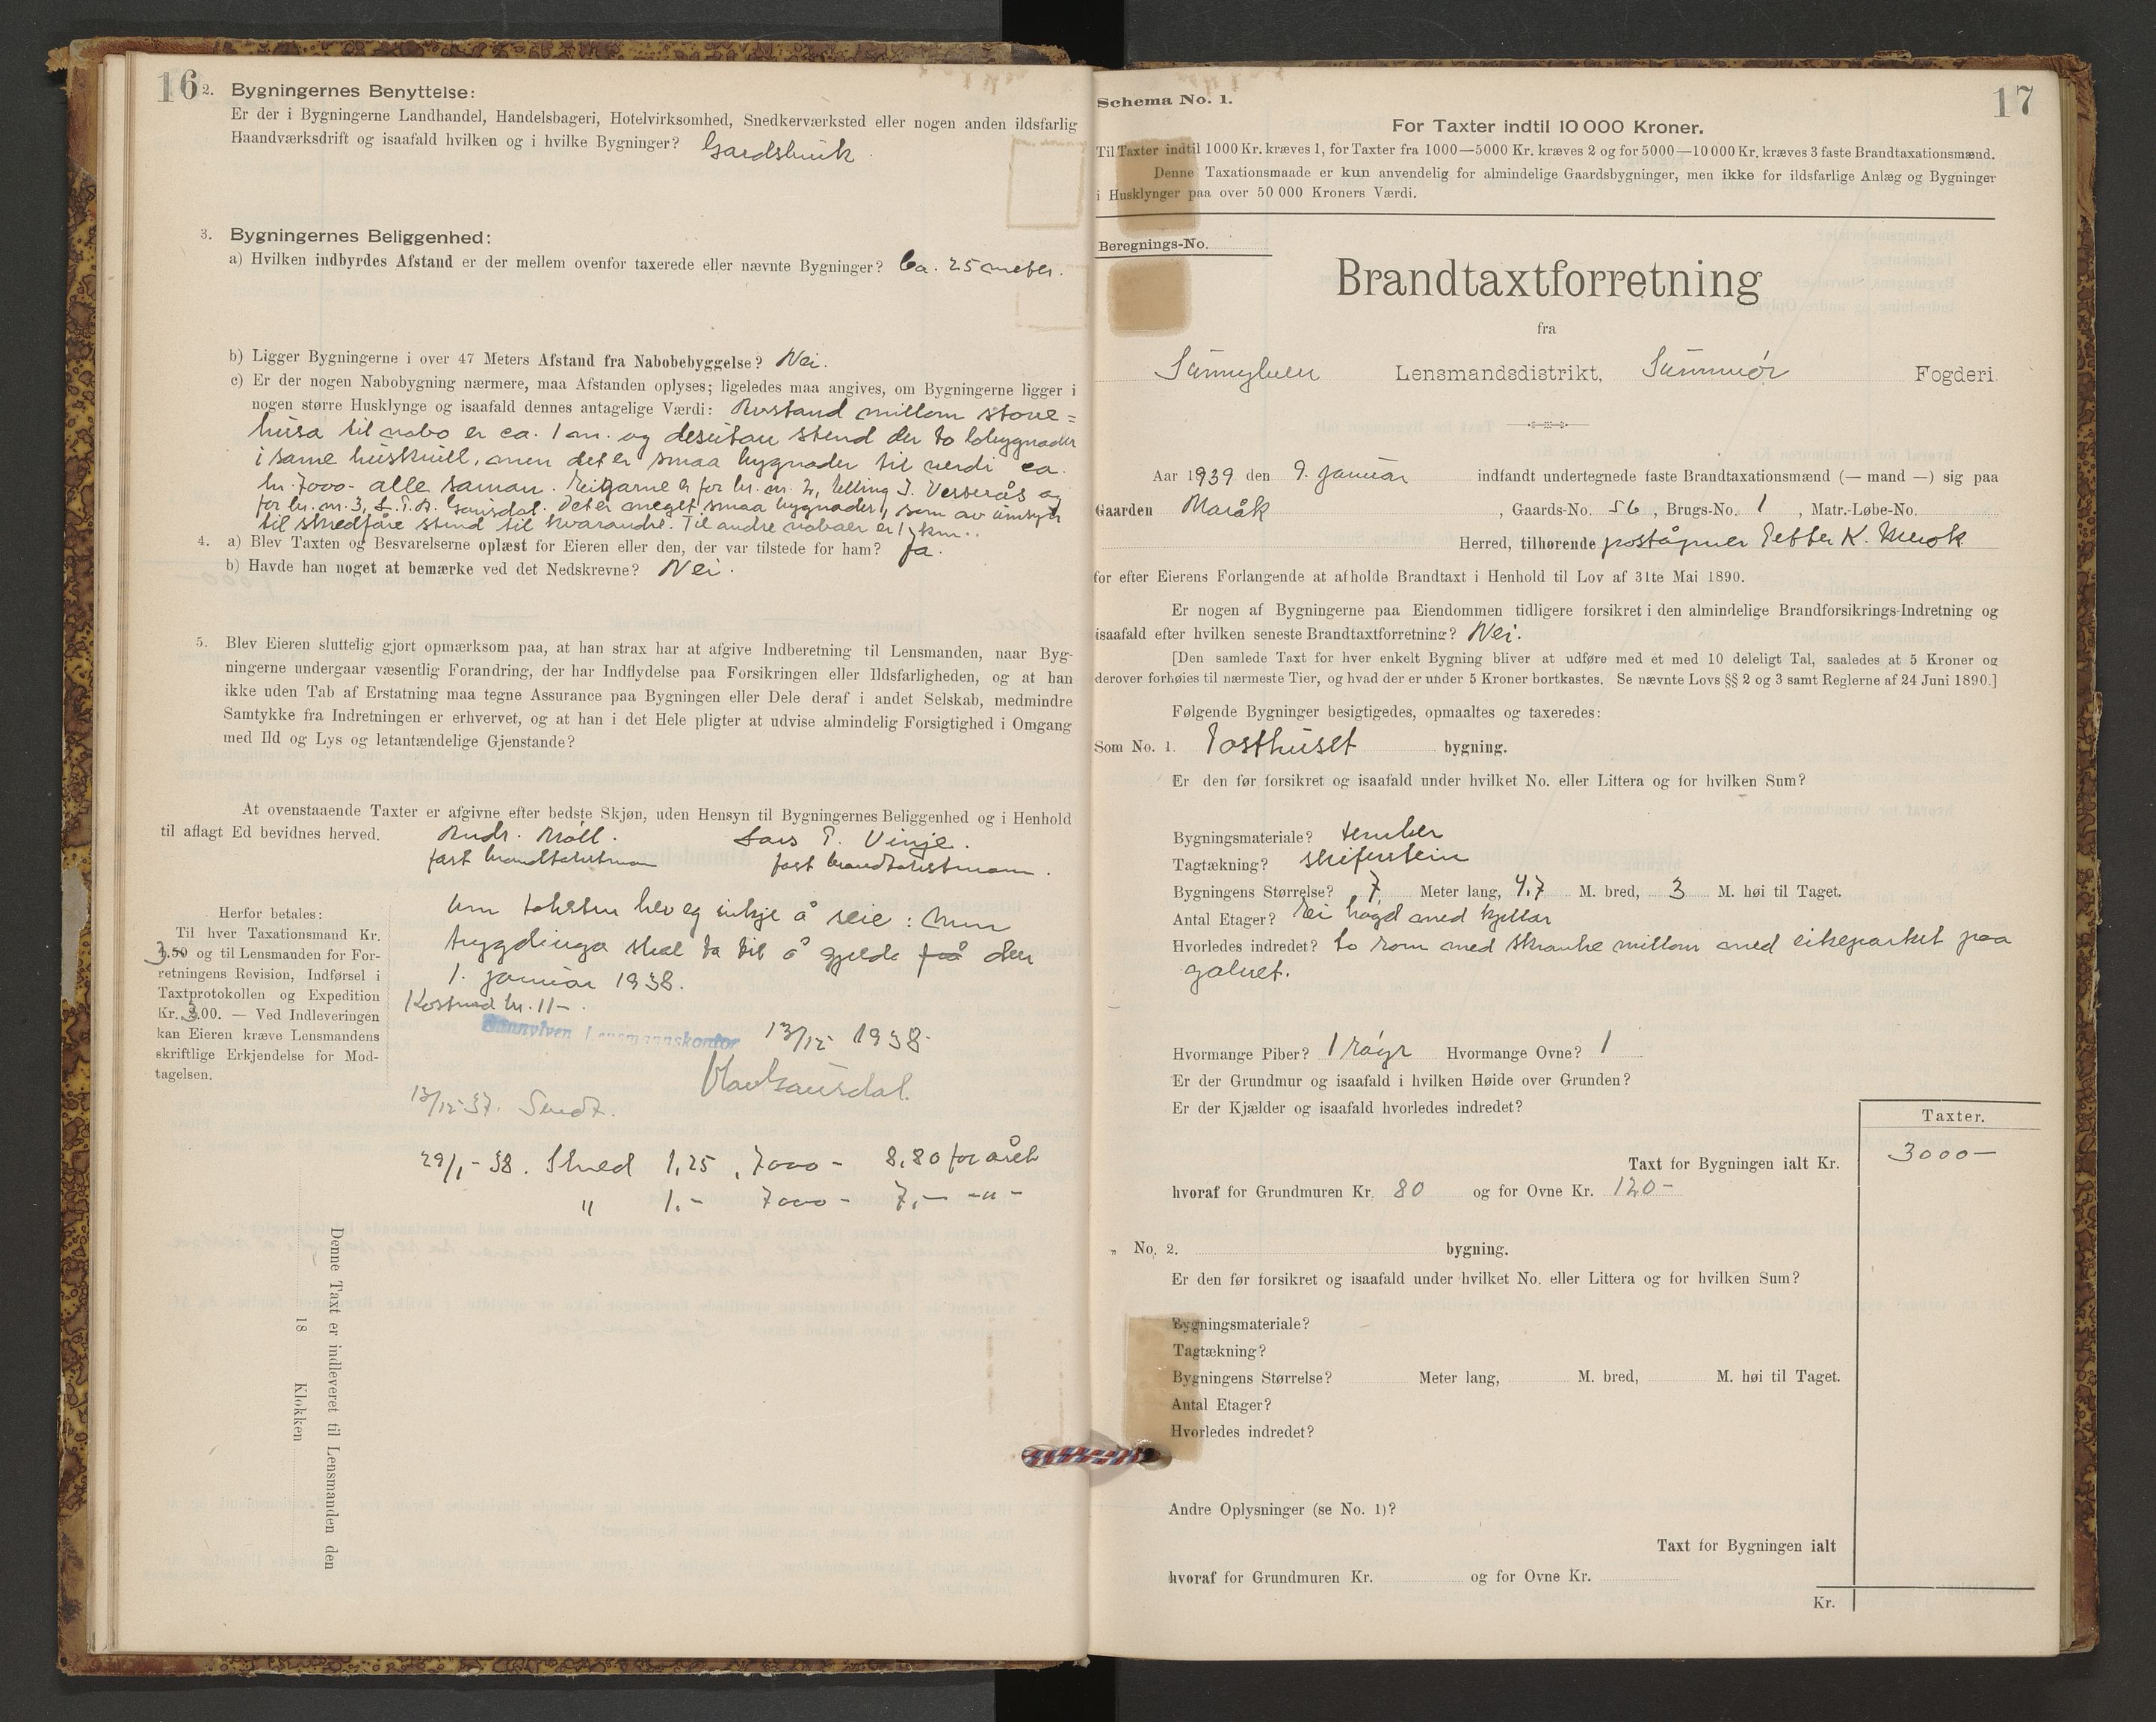 16
2. Bygningernes Benyttelse:
Er der i Bygningerne Landhandel, Handelsbageri, Hotelvirksomhed, Snedkerværksted eller nogen anden ildsfarlig
Haandværksdrift og isaafald hvilken og i hvilke Bygninger? Gardsbruk
3. Bygningernes Beliggenhed:
a) Hvilken indbyrdes Afstand er der mellem ovenfor taxerede eller nævnte Bygninger? Ca. 25 meter.
b) Ligger Bygningerne i over 47 Meters Afstand fra Nabobebyggelse? Nei.
c) Er der nogen Nabobygning nærmere, maa Afstanden oplyses; ligeledes maa angives, om Bygningerne ligger i
nogen større Husklynge og isaafald dennes antagelige Værdi: Avstand millom stove=
husa til nabo er ca. 1 m. og desutan stend der to lobygnader
i same huskull, men det er smaa bygnader til verdi ca.
kr. 7000- alle saman. Eigarne er for br. nr. 2, Elling J. Vesterås og
for br. nr. 3, L. P. A. Gausdal. Det er meget smaa bygnader, som av umsyn
til skredfåre stend til kvarandre. Til andre naboer er 1 km.
4. a) Blev Taxten og Besvarelserne oplæst for Eieren eller den, der var tilstede for ham? Ja.
b) Havde han noget at bemærke ved det Nedskrevne? Nei.
5. Blev Eieren sluttelig gjort opmærksom paa, at han strax har at afgive Indberetning til Lensmanden, naar Byg-
ningerne undergaar væsentlig Forandring, der har Indflydelse paa Forsikringen eller Ildsfarligheden, og at han
ikke uden Tab af Erstatning maa tegne Assurance paa Bygningen eller Dele deraf i andet Selskab, medmindre
Samtykke fra Indretningen er erhvervet, og at han i det Hele pligter at udvise almindelig Forsigtighed i Omgang
med Ild og Lys og letantændelige Gjenstande?
At ovenstaaende Taxter er afgivne efter bedste Skjøn, uden Hensyn til Bygningernes Beliggenhed og i Henhold
til aflagt Ed bevidnes herved. Andr. Moll. Lars P. Vinje.
fast brandtakstmann fast brandtakstmann.
Um taksten hev eg inkje å seie: Men
trygdinga skal ta til å gjelde frå den
1. januar 1938.
Kostnad kr. 11-.
Sunnylven Lensmannskontor 13/12 1938.
Olav Gausdal.
13/12-37. Sendt.
29/1-38. Skred 1,25, 7000- 8,80 for året
" 1.- 7000- 7,- -"-
Herfor betales:
Til hver Taxationsmand Kr.
3.50 og til Lensmanden for For-
retningens Revision, Indførsel i
Taxtprotokollen og Expedition
Kr. 3.00. — Ved Indleveringen
kan Eieren kræve Lensmandens
skriftlige Erkjendelse for Mod-
tagelsen.
Denne Taxt er indleveret til Lensmanden den
18 Klokken
17
Schema No. 1.
For Taxter indtil 10 000 Kroner.
Til Taxter indtil 1000 Kr. kræves 1, for Taxter fra 1000—5000 Kr. kræves 2 og for 5000—10 000 Kr. kræves 3 faste Brandtaxationsmænd.
Denne Taxationsmaade er kun anvendelig for almindelige Gaardsbygninger, men ikke for ildsfarlige Anlæg og Bygninger
i Husklynger paa over 50 000 Kroners Værdi.
Beregnings-No.
Brandtaxtforretning
fra
Sunnylven Lensmandsdistrikt, Sunnmør Fogderi.
Aar 1939 den 9. januar indfandt undertegnede faste Brandtaxationsmænd (— mand —) sig paa
Gaarden Maråk, Gaards-No. 56, Brugs-No. 1, Matr.-Løbe-No.
Herred, tilhørende poståpner Petter K. Merok
for efter Eierens Forlangende at afholde Brandtaxt i Henhold til Lov af 31te Mai 1890.
Er nogen af Bygningerne paa Eiendommen tidligere forsikret i den almindelige Brandforsikrings-Indretning og
isaafald efter hvilken seneste Brandtaxtforretning? Nei.
[Den samlede Taxt for hver enkelt Bygning bliver at udføre med et med 10 deleligt Tal, saaledes at 5 Kroner og
derover forhøies til nærmeste Tier, og hvad der er under 5 Kroner bortkastes. Se nævnte Lovs §§ 2 og 3 samt Reglerne af 24 Juni 1890.]
Følgende Bygninger besigtigedes, opmaaltes og taxeredes:
Som No. 1. Posthuset bygning.
Er den før forsikret og isaafald under hvilket No. eller Littera og for hvilken Sum?
Bygningsmateriale? tember
Tagtækning? skiferstein
Bygningens Størrelse? 7 Meter lang, 4,7 M. bred, 3 M. høi til Taget.
Antal Etager? Ei høgd med kjellar
Hvorledes indredet? to rom med skranke millom med eikeparket paa
golvet.
Hvormange Piber? 1 røyr Hvormange Ovne? 1
Er der Grundmur og isaafald i hvilken Høide over Grunden?
Er der Kjælder og isaafald hvorledes indredet?
Taxter.
Taxt for Bygningen ialt Kr. 3000-
hvoraf for Grundmuren Kr. 80 og for Ovne Kr. 120-
„ No. 2. bygning.
Er den før forsikret og isaafald under hvilket No. eller Littera og for hvilken Sum?
Bygningsmateriale?
Tagtækning?
Bygningens Størrelse? Meter lang, M. bred, M. høi til Taget.
Antal Etager?
Hvorledes indredet?
Andre Oplysninger (se No. 1)?
Taxt for Bygningen ialt
hvoraf for Grundmuren Kr. og for Ovne Kr.
Kr.